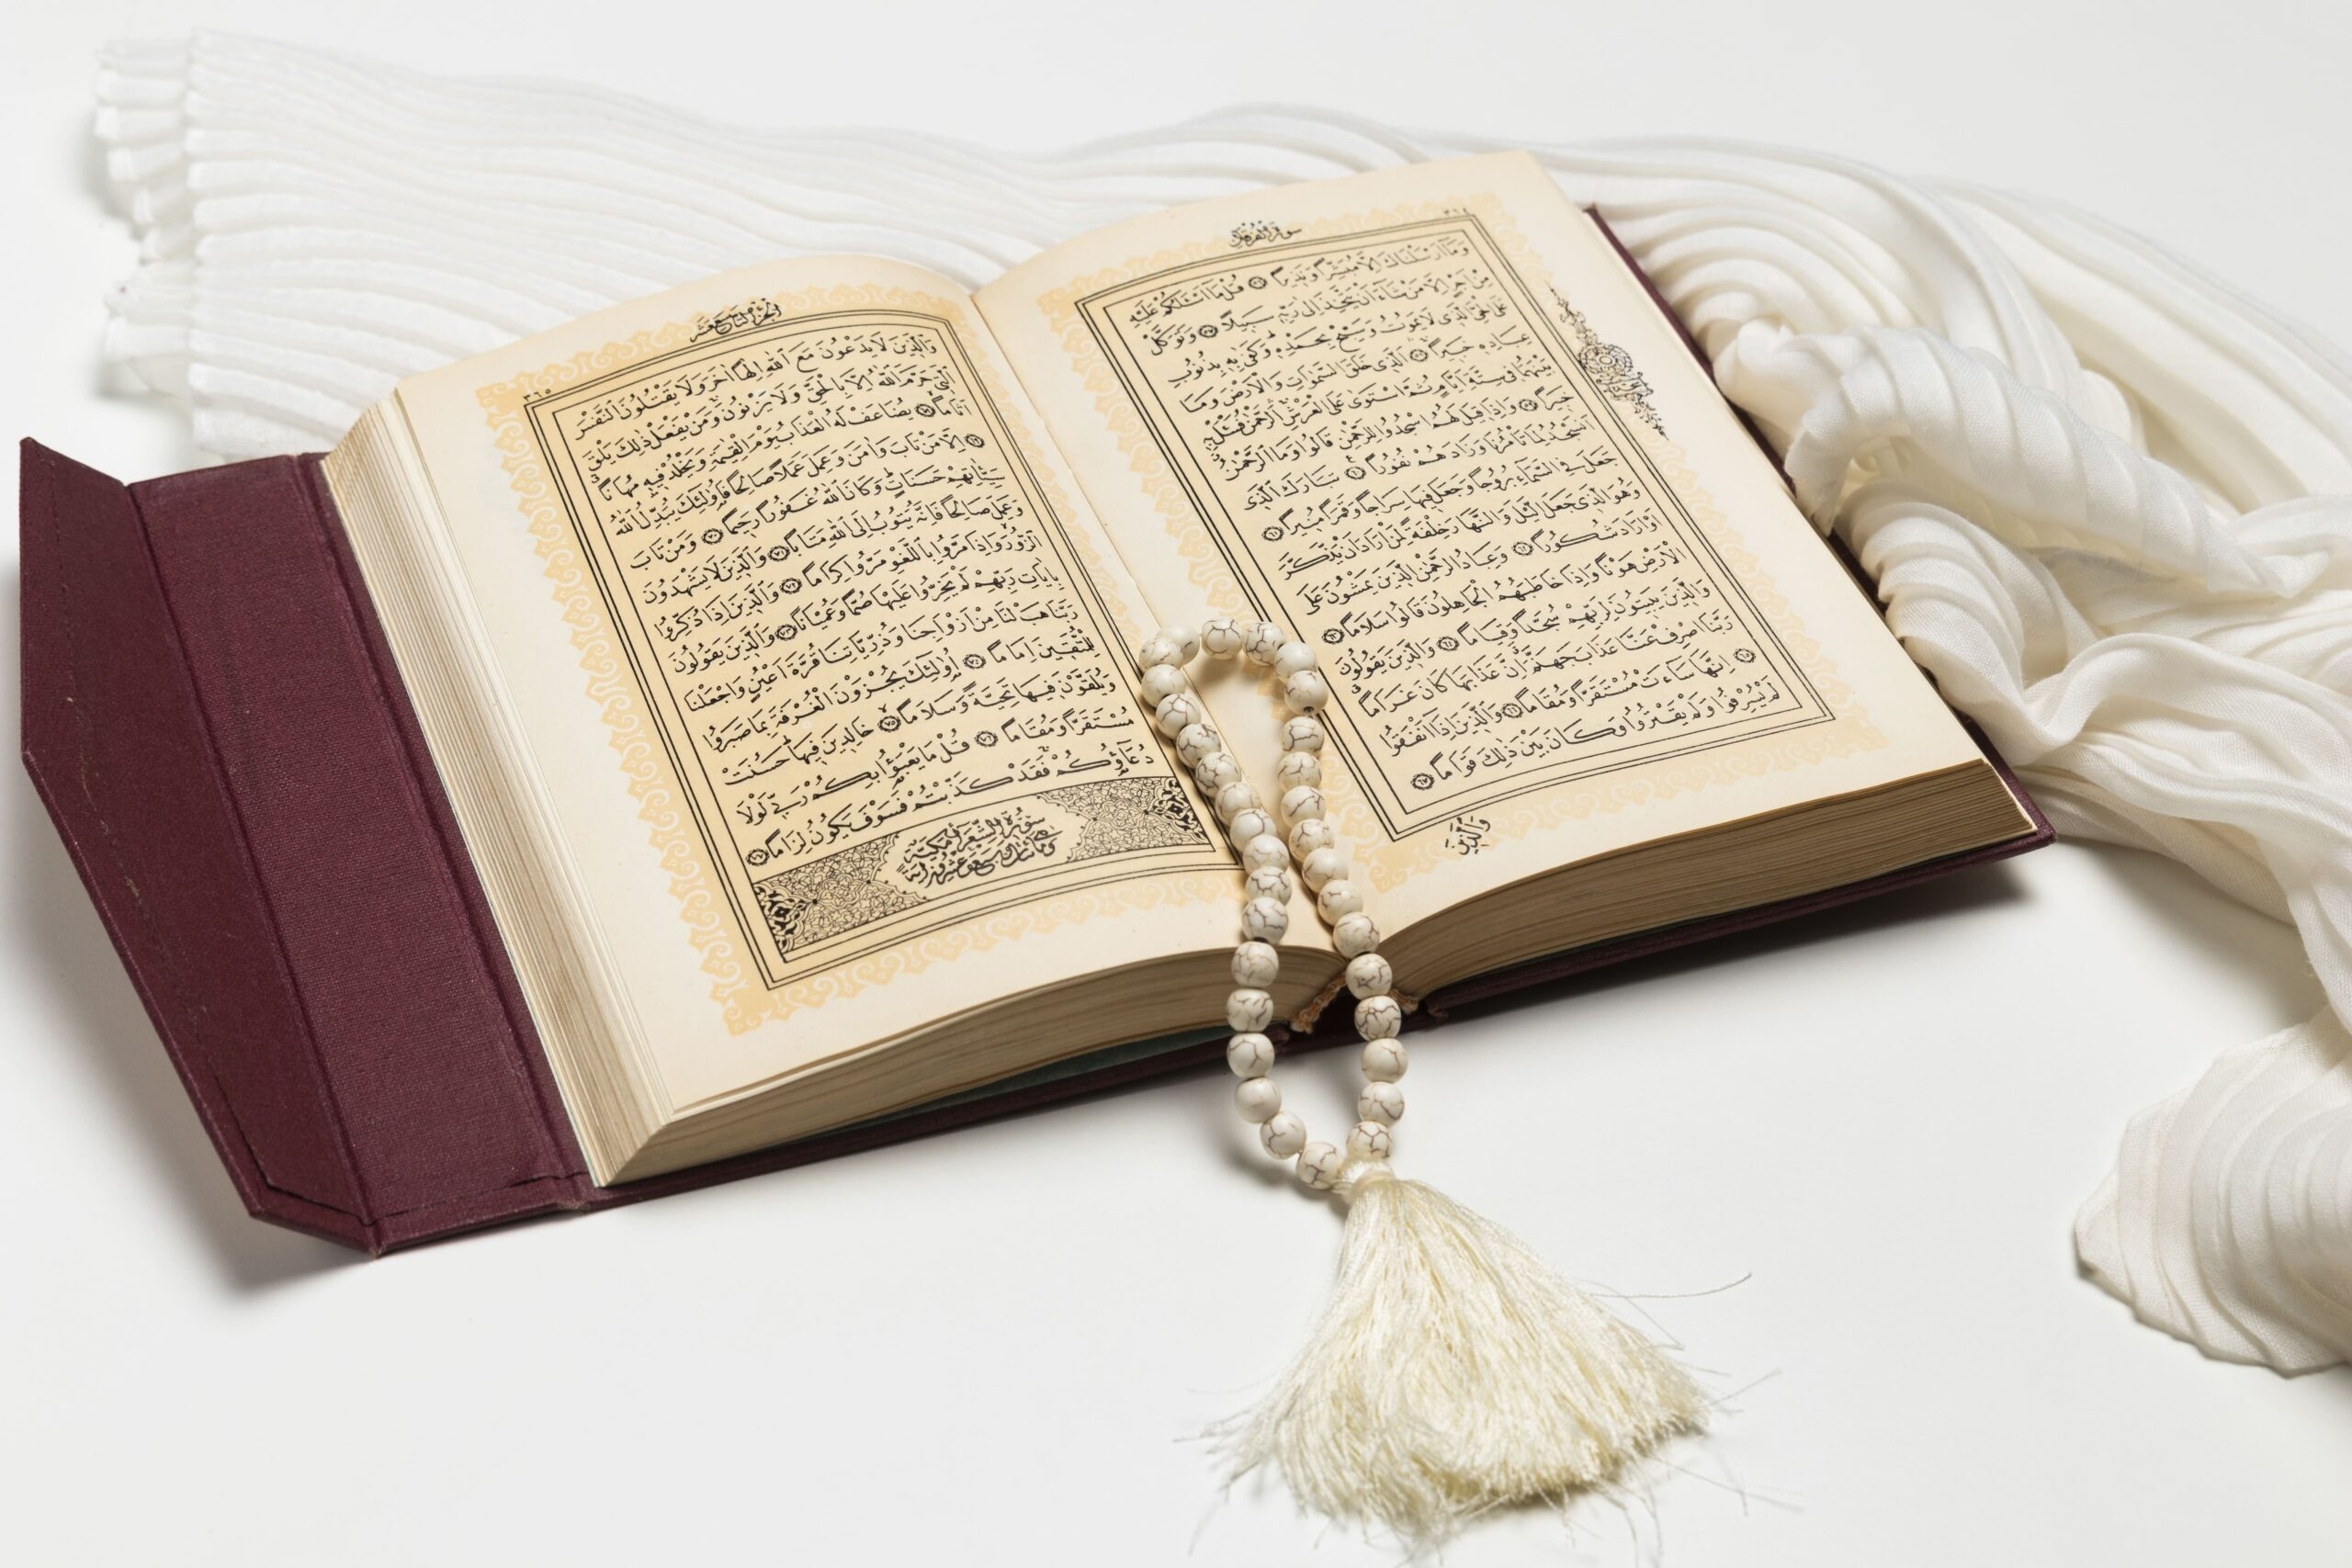 ٣٦٤
سورة الفرقان
وَمَٓا اَرْسَلْنَاكَ اِلَّا مُبَشِّرًا وَنَذِيرًا ﴿٥٦﴾ قُلْ مَٓا اَسْئَلُكُمْ عَلَيْهِ
مِنْ اَجْرٍ اِلَّا مَنْ شَٓاءَ اَنْ يَتَّخِذَ اِلٰى رَبِّهٖ سَبِيلًا ﴿٥٧﴾ وَتَوَكَّلْ
عَلَى الْحَيِّ الَّذِى لَا يَمُوتُ وَسَبِّحْ بِحَمْدِهٖ وَكَفٰى بِهٖ بِذُنُوبِ
عِبَادِهٖ خَبِيرًا ﴿٥٨﴾ اَلَّذِى خَلَقَ السَّمٰوَاتِ وَالْاَرْضَ وَمَا
بَيْنَهُمَا فِى سِتَّةِ اَيَّامٍ ثُمَّ اسْتَوٰى عَلَى الْعَرْشِ اَلرَّحْمٰنُ فَسْئَلْ بِهٖ
خَبِيرًا ﴿٥٩﴾ وَاِذَا قِيلَ لَهُمُ اسْجُدُوا لِلرَّحْمٰنِ قَالُوا وَمَا الرَّحْمٰنُ
اَنَسْجُدُ لِمَا تَأْمُرُنَا وَزَادَهُمْ نُفُورًا ﴿٦٠﴾ تَبَارَكَ الَّذِى
جَعَلَ فِى السَّمَٓاءِ بُرُوجًا وَجَعَلَ فِيهَا سِرَاجًا وَقَمَرًا مُنِيرًا ﴿٦١﴾
وَهُوَ الَّذِى جَعَلَ الَّيْلَ وَالنَّهَارَ خِلْفَةً لِمَنْ اَرَادَ اَنْ يَذَّكَّرَ
اَوْ اَرَادَ شُكُورًا ﴿٦٢﴾ وَعِبَادُ الرَّحْمٰنِ الَّذِينَ يَمْشُونَ عَلَى
الْاَرْضِ هَوْنًا وَاِذَا خَاطَبَهُمُ الْجَاهِلُونَ قَالُوا سَلَامًا ﴿٦٣﴾
وَالَّذِينَ يَبِيتُونَ لِرَبِّهِمْ سُجَّدًا وَقِيَامًا ﴿٦٤﴾ وَالَّذِينَ يَقُولُونَ
رَبَّنَا اصْرِفْ عَنَّا عَذَابَ جَهَنَّمَ اِنَّ عَذَابَهَا كَانَ غَرَامًا
﴿٦٥﴾ اِنَّهَا سَٓاءَتْ مُسْتَقَرًّا وَمُقَامًا ﴿٦٦﴾ وَالَّذِينَ اِذَٓا اَنْفَقُوا
لَمْ يُسْرِفُوا وَلَمْ يَقْتُرُوا وَكَانَ بَيْنَ ذٰلِكَ قَوَامًا ﴿٦٧﴾
وَالَّذِينَ
الجزء التاسع عشر
٣٦٥
وَالَّذِينَ لَا يَدْعُونَ مَعَ اللّٰهِ اِلٰهًا اٰخَرَ وَلَا يَقْتُلُونَ النَّفْسَ
الَّتِى حَرَّمَ اللّٰهُ اِلَّا بِالْحَقِّ وَلَا يَزْنُونَ وَمَنْ يَفْعَلْ ذٰلِكَ يَلْقَ
اَثَامًا ﴿٦٨﴾ يُضَاعَفْ لَهُ الْعَذَابُ يَوْمَ الْقِيٰمَةِ وَيَخْلُدْ فِيهٖ مُهَانًا
﴿٦٩﴾ اِلَّا مَنْ تَابَ وَاٰمَنَ وَعَمِلَ عَمَلًا صَالِحًا فَاُولٰٓئِكَ يُبَدِّلُ اللّٰهُ
سَيِّـَٔاتِهِمْ حَسَنَاتٍ وَكَانَ اللّٰهُ غَفُورًا رَحِيمًا ﴿٧٠﴾ وَمَنْ تَابَ
وَعَمِلَ صَالِحًا فَاِنَّهُ يَتُوبُ اِلَى اللّٰهِ مَتَابًا ﴿٧١﴾ وَالَّذِينَ لَا يَشْهَدُونَ
الزُّورَ وَاِذَا مَرُّوا بِاللَّغْوِ مَرُّوا كِرَامًا ﴿٧٢﴾ وَالَّذِينَ اِذَا ذُكِّرُوا
بِاٰيَاتِ رَبِّهِمْ لَمْ يَخِرُّوا عَلَيْهَا صُمًّا وَعُمْيَانًا ﴿٧٣﴾ وَالَّذِينَ يَقُولُونَ
رَبَّنَا هَبْ لَنَا مِنْ اَزْوَاجِنَا وَذُرِّيَّاتِنَا قُرَّةَ اَعْيُنٍ وَاجْعَلْنَا
لِلْمُتَّقِينَ اِمَامًا ﴿٧٤﴾ اُولٰٓئِكَ يُجْزَوْنَ الْغُرْفَةَ بِمَا صَبَرُوا
وَيُلَقَّوْنَ فِيهَا تَحِيَّةً وَسَلَامًا ﴿٧٥﴾ خَالِدِينَ فِيهَا حَسُنَتْ
مُسْتَقَرًّا وَمُقَامًا ﴿٧٦﴾ قُلْ مَا يَعْبَؤُ۬ا بِكُمْ رَبِّى لَوْلَا
دُعَٓاؤُكُمْ فَقَدْ كَذَّبْتُمْ فَسَوْفَ يَكُونُ لِزَامًا ﴿٧٧﴾
سورة الشعراء مكية
وهى مائتان وسبع وعشرون آية